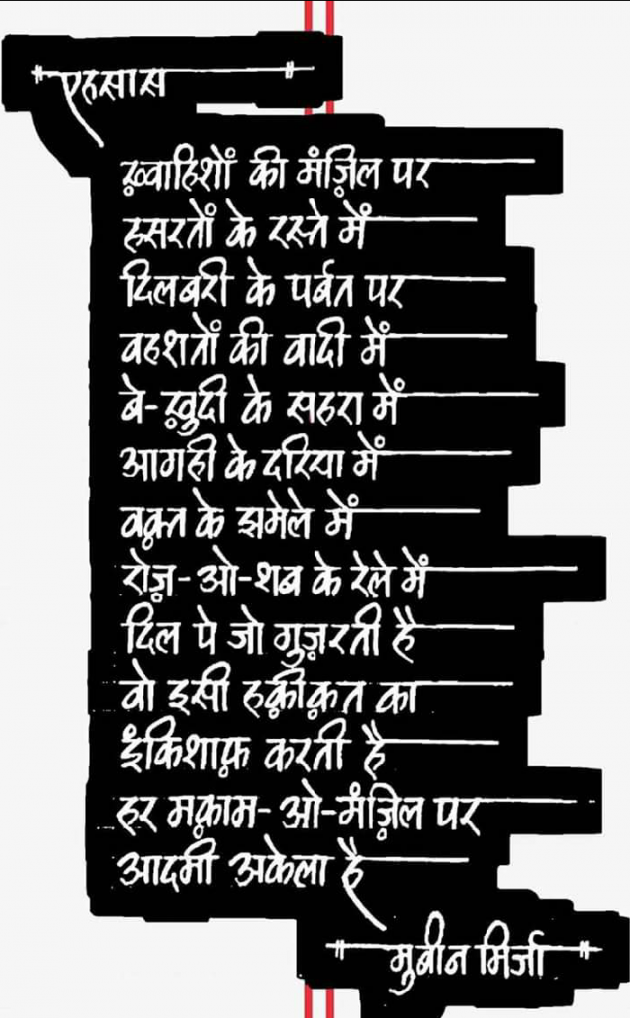 "एहसास"
ख़्वाहिशों की मंज़िल पर
हसरतों के रस्ते में
दिलबरी के पर्बत पर
वहशतों की वादी में
बे-ख़ुदी के सहरा में
आगही के दरिया में
वक़्त के झमेले में
रोज़-ओ-शब के रेले में
दिल पे जो गुज़रती है
वो इसी हक़ीक़त का
इंकिशाफ़ करती है
हर मक़ाम-ओ-मंज़िल पर
आदमी अकेला है
"मुबीन मिर्जा"